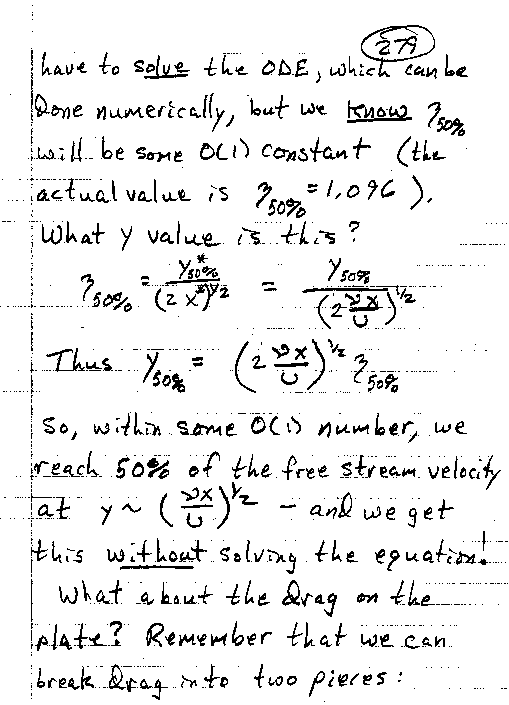 279
have to solve the ODE, which can be
done numerically, but we know η50%
will be some O(1) constant (the
actual value is η50% = 1.096).
What y value is this?
η50% = y*50% / (2x*)^1/2 = y50% / (2 νx/U)^1/2
Thus y50% = (2 νx/U)^1/2 η50%
So, within some O(1) number, we
reach 50% of the free stream velocity
at y ~ (νx/U)^1/2 - and we get
this without solving the equation!
What about the drag on the
plate? Remember that we can
break drag into two pieces: